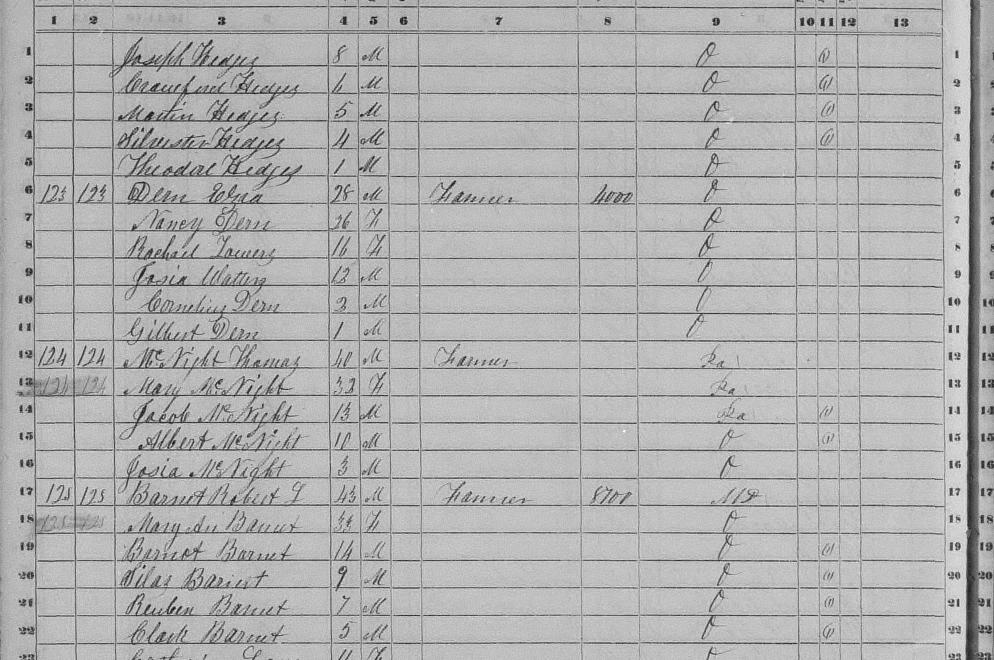 1 2 3 4 5 6 7 8 9 10 11 12 13
1 Joseph Hedges 8 M O 1 1
2 Crawford Hedges 6 M O 1 2
3 Martin Hedges 5 M O 1 3
4 Silvester Hedges 4 M O 1 4
5 Theodore Hedges 1 M O 5
6 123 123 Dern Ezra 28 M Farmer 4000 O 6
7 Nancy Dern 26 F O 7
8 Rachael Towers 16 F O 8
9 Josia Watters 12 M O 9
10 Cornelius Dern 2 M O 10
11 Gilbert Dern 1 M O 11
12 124 124 McNight Thomas 40 M Farmer Pa 12
13 124 124 Mary McNight 32 F Pa 13
14 Jacob McNight 13 M Pa 1 14
15 Albert McNight 10 M O 1 15
16 Josia McNight 3 M O 16
17 125 125 Barnet Robert L 43 M Farmer 8700 Md 17
18 125 125 Mary An Barnet 33 F O 18
19 Barnet 14 M O 1 19
20 Silas Barnet 9 M O 1 20
21 Reuben Barnet 7 M O 1 21
22 Clark Barnet 5 M O 1 22
23 F O 23